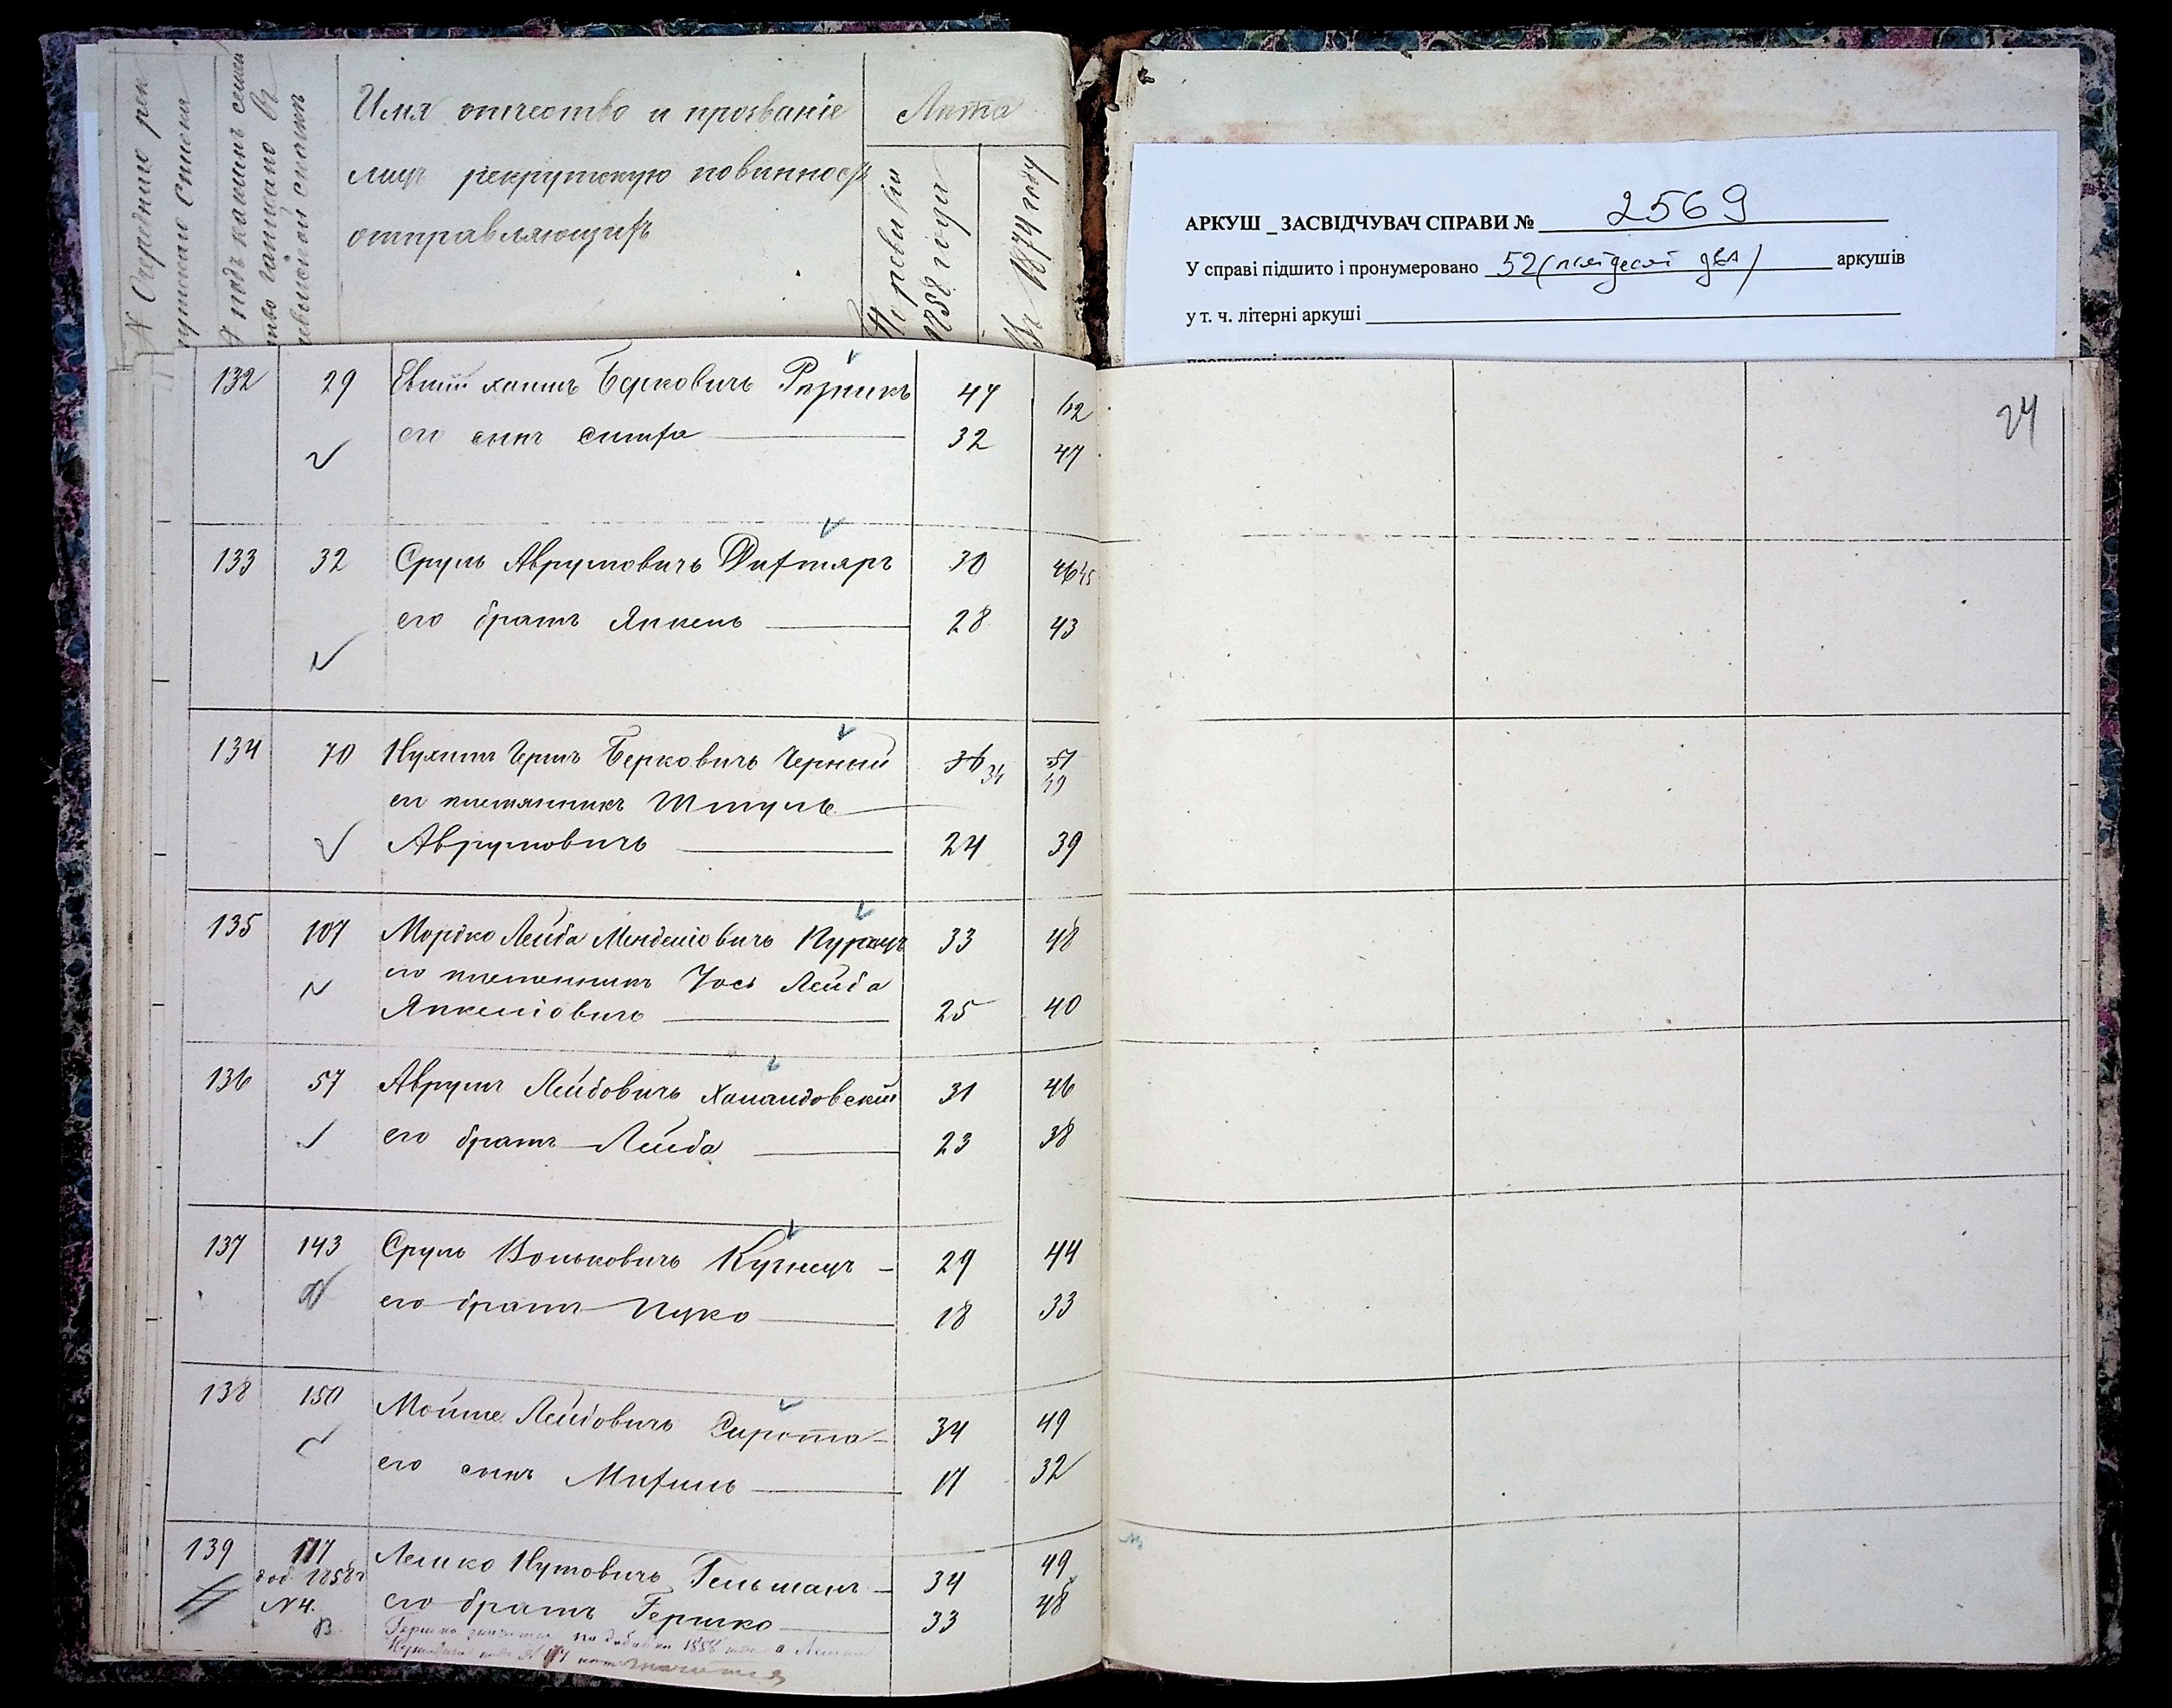 № Очередные рек
рутскаго списка
подъ какимъ семей
ство записано въ
ревизской сказкѣ
Имя отчество и прозваніе
лицъ рекрутскую повинность
отправляющихъ
Лѣта
По ревизіи
1858 года
Въ 1874 году
АРКУШ _ ЗАСВІДЧУВАЧ СПРАВИ № 2569
У справі підшито і пронумеровано 52 (пятдесят два) аркушів
у т. ч. літерні аркуші
24
132 29 Хаимъ Берковичъ Рѣзникъ 47 62
его сынъ Симха 32 47
133 32 Сруль Аврумовичъ Дихтяръ 30 46 45
его братъ Янкель 28 43
134 70 Нухимъ Герша Берковичъ Черный 36 34 51 49
его племянникъ Шмуль
Аврумовичъ 24 39
135 107 Мордко Лейба Менделіовичъ 33 48
его племянникъ Іось Лейба
Янкеліовичъ 25 40
136 57 Аврумъ Лейбовичъ 31 46
его братъ Лейба 23 38
137 143 Сруль Вольковичъ Кузнецъ 29 44
его братъ Ицко 18 33
138 150 Мойше Лейбовичъ Сирота 34 49
его сынъ Михель 17 32
139 117 Лейко Нутовичъ Гельманъ 34 49
доб. 1858 г
№ 4. его братъ Гершко 33 48
Гершко значится по добавки 1858 года а